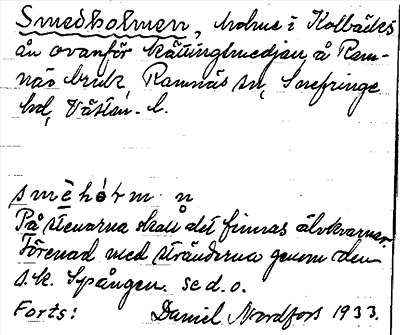 Smedholmen, holme i Kolbäcks
ån ovanför kättingsmedjan å Ram-
näs bruk, Ramnäs sn, Snefringe
hd, Västm. l.
smèhól m n
På stenarna skall det finnas älvkvarnar.
Förenad med stränderna genom den
s.k. Spången se d.o.
Forts: Daniel Nordfors 1933.